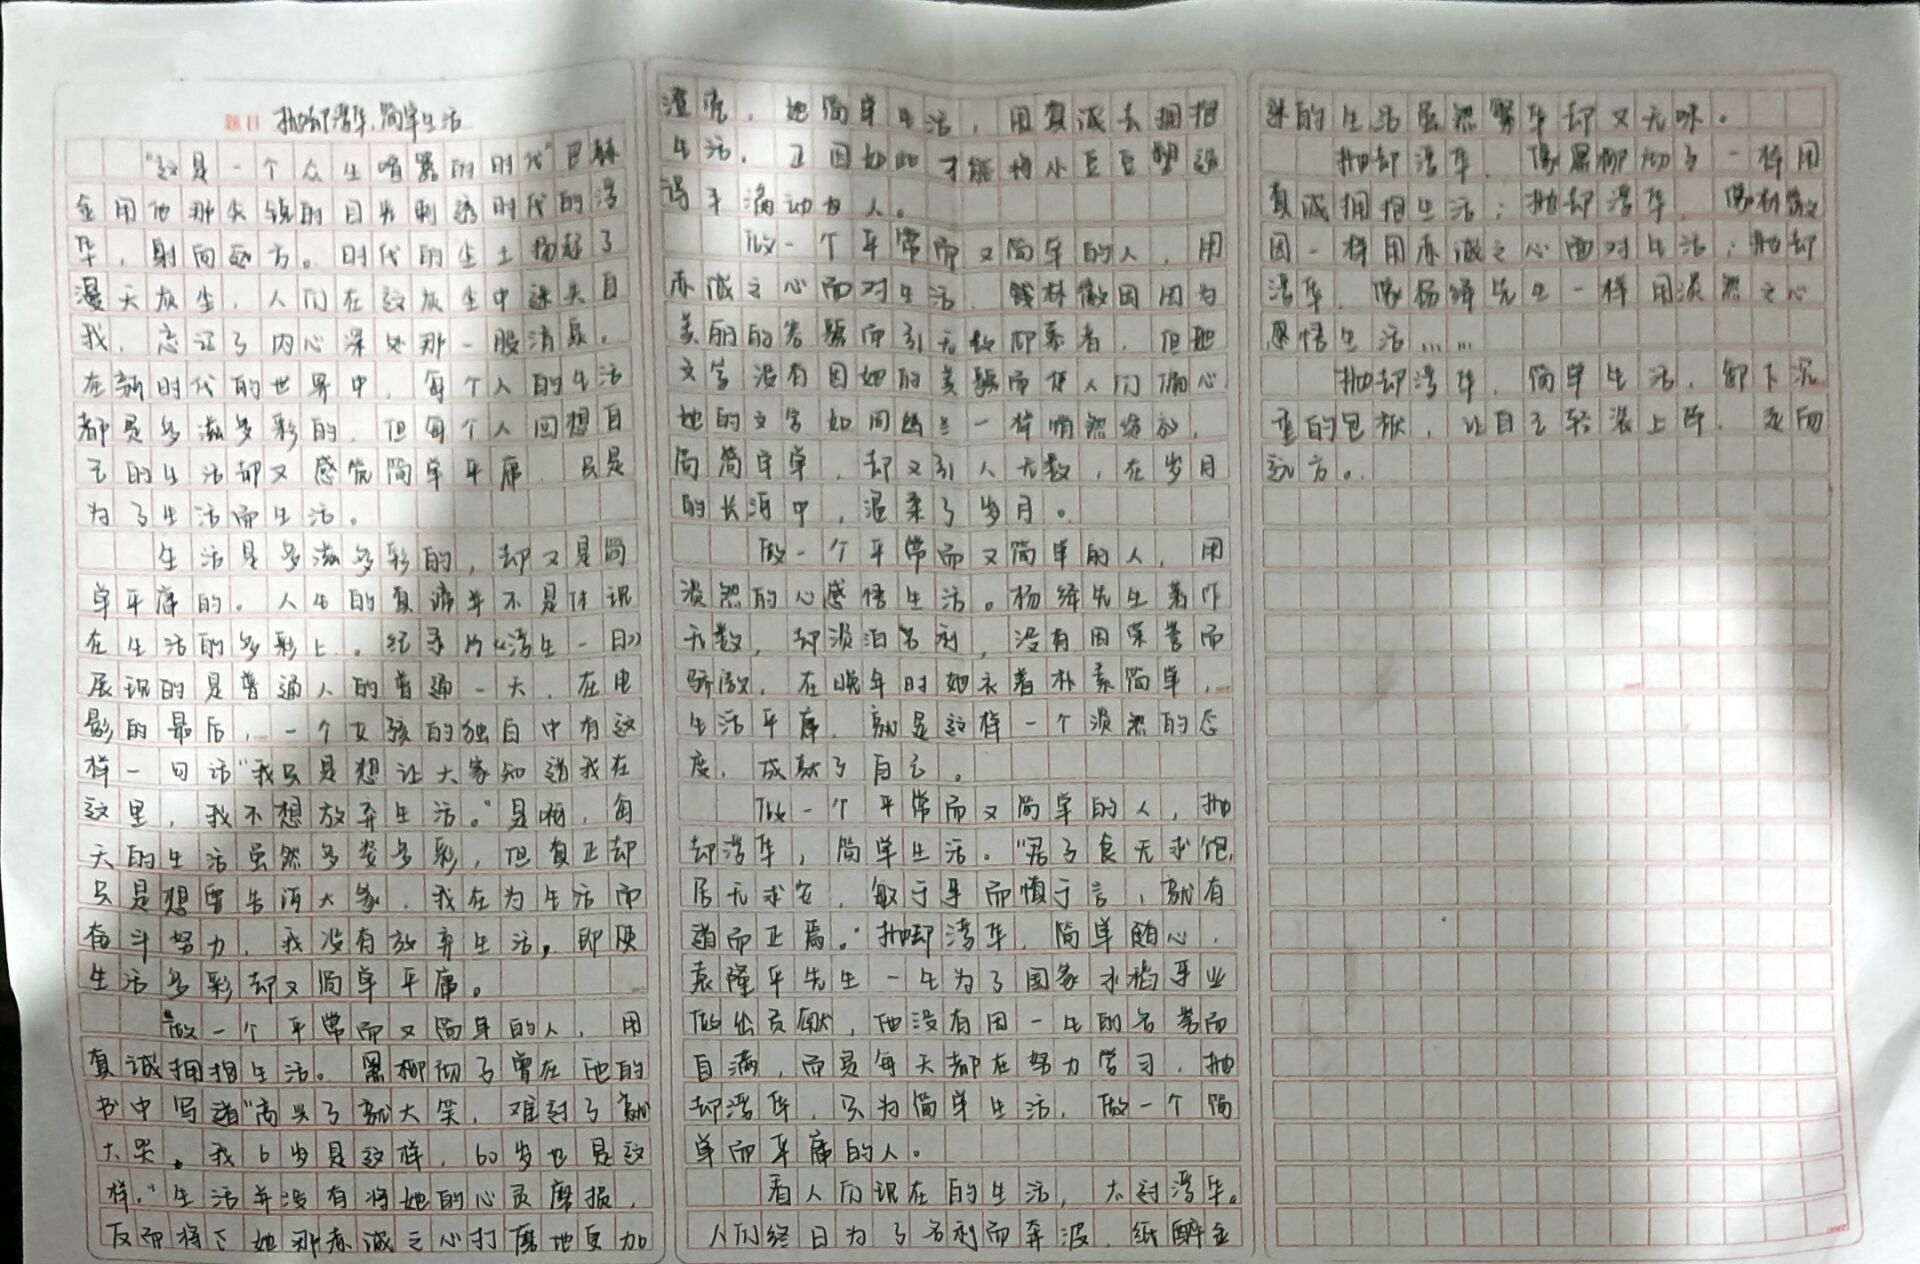 题目 抛却浮华,简单生活
"这是一个众生喧嚣的时代"巴赫
金用他那尖锐的目光刺透时代的浮
华,射向远方。时代的尘土扬起了
漫天灰尘,人们在这灰尘中迷失自
我,忘记了内心深处那一股清泉。
在新时代的世界中,每个人的生活
都是多滋多彩的,但每个人回想自
己的生活却又感觉简单平庸,只是
为了生活而生活。
生活是多滋多彩的,却又是简
单平庸的。人生的真谛并不是体现
在生活的多彩上。纪录片《浮生一日》
展现的是普通人的普通一天,在电
影的最后,一个女孩的独白中有这
样一句话"我只是想让大家知道我在
这里,我不想放弃生活。"是啊,每
天的生活虽然多姿多彩,但真正却
只是想要告诉大家,我在为生活而
奋斗努力,我没有放弃生活,即使
生活多彩却又简单平庸。
做一个平常而又简单的人,用
真诚拥抱生活。黑柳彻子曾在他的
书中写道"高兴了就大笑,难过了就
大哭。我6岁是这样,60岁也是这
样。"生活并没有将她的心灵磨损,
反而将她那赤诚之心打磨地更加
澄亮,她简单生活,用真诚去拥抱
生活,正因如此才能将小豆豆塑造
得平滴动人。
做一个平常而又简单的人,用
赤诚之心面对生活,林徽因因为
美丽的容貌而引无数仰慕者,但她
文字没有因她的美貌而使人们偏心
她的文字如同幽兰一样悄然绽放,
简简单单,却又引人无数,在岁月
的长河中,温柔了岁月。
做一个平常而又简单的人,用
淡然的心感悟生活。杨绛先生著作
无数,却淡泊名利,没有因荣誉而
骄傲,在晚年时她衣着朴素简单,
生活平庸,就是这样一个淡然的态
度,成就了自己。
做一个平常而又简单的人,抛
却浮华,简单生活。"君子食无求饱,
居无求安,敏于事而慎于言,就有
道而正焉。"抛却浮华,简单随心,
袁隆平先生一生为了国家水稻事业
做出贡献,他没有因一生的名誉而
自满,而是每天都在努力学习,抛
却浮华,只为简单生活,做一个简
单而平庸的人。
看人们现在的生活,太过浮华。
人们终日为了名利而奔波,纸醉金
迷的生活虽然繁华却又无味。
抛却浮华,像黑柳彻子一样用
真诚拥抱生活;抛却浮华,像林徽
因一样用赤诚之心面对生活;抛却
浮华,像杨绛先生一样用淡然之心
感悟生活……
抛却浮华,简单生活,卸下沉
重的包袱,让自己轻装上阵,走向
远方。